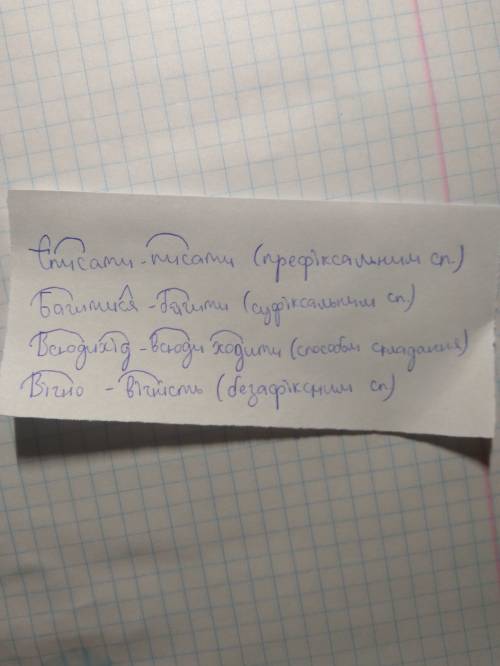 Вписати - писати (префіксальним сп.)
Бачитися - бачити (суфіксальним сп.)
Всюдихід - всюди ходити (способом складання)
Вічно - вічність (безафіксним сп)